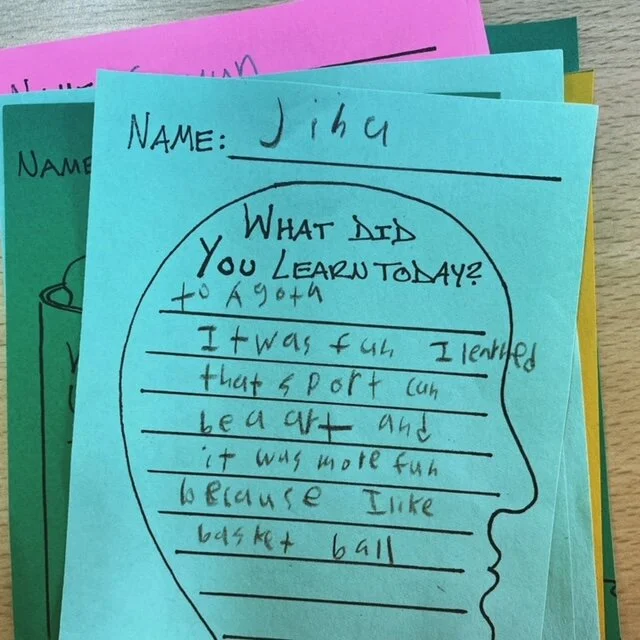 NAME: Jihu
WHAT DID
YOU LEARN TODAY?
to Agotn
It was fun I lenrhed
that sport can
be a art and
it was more fun
because I like
basket ball
NAME